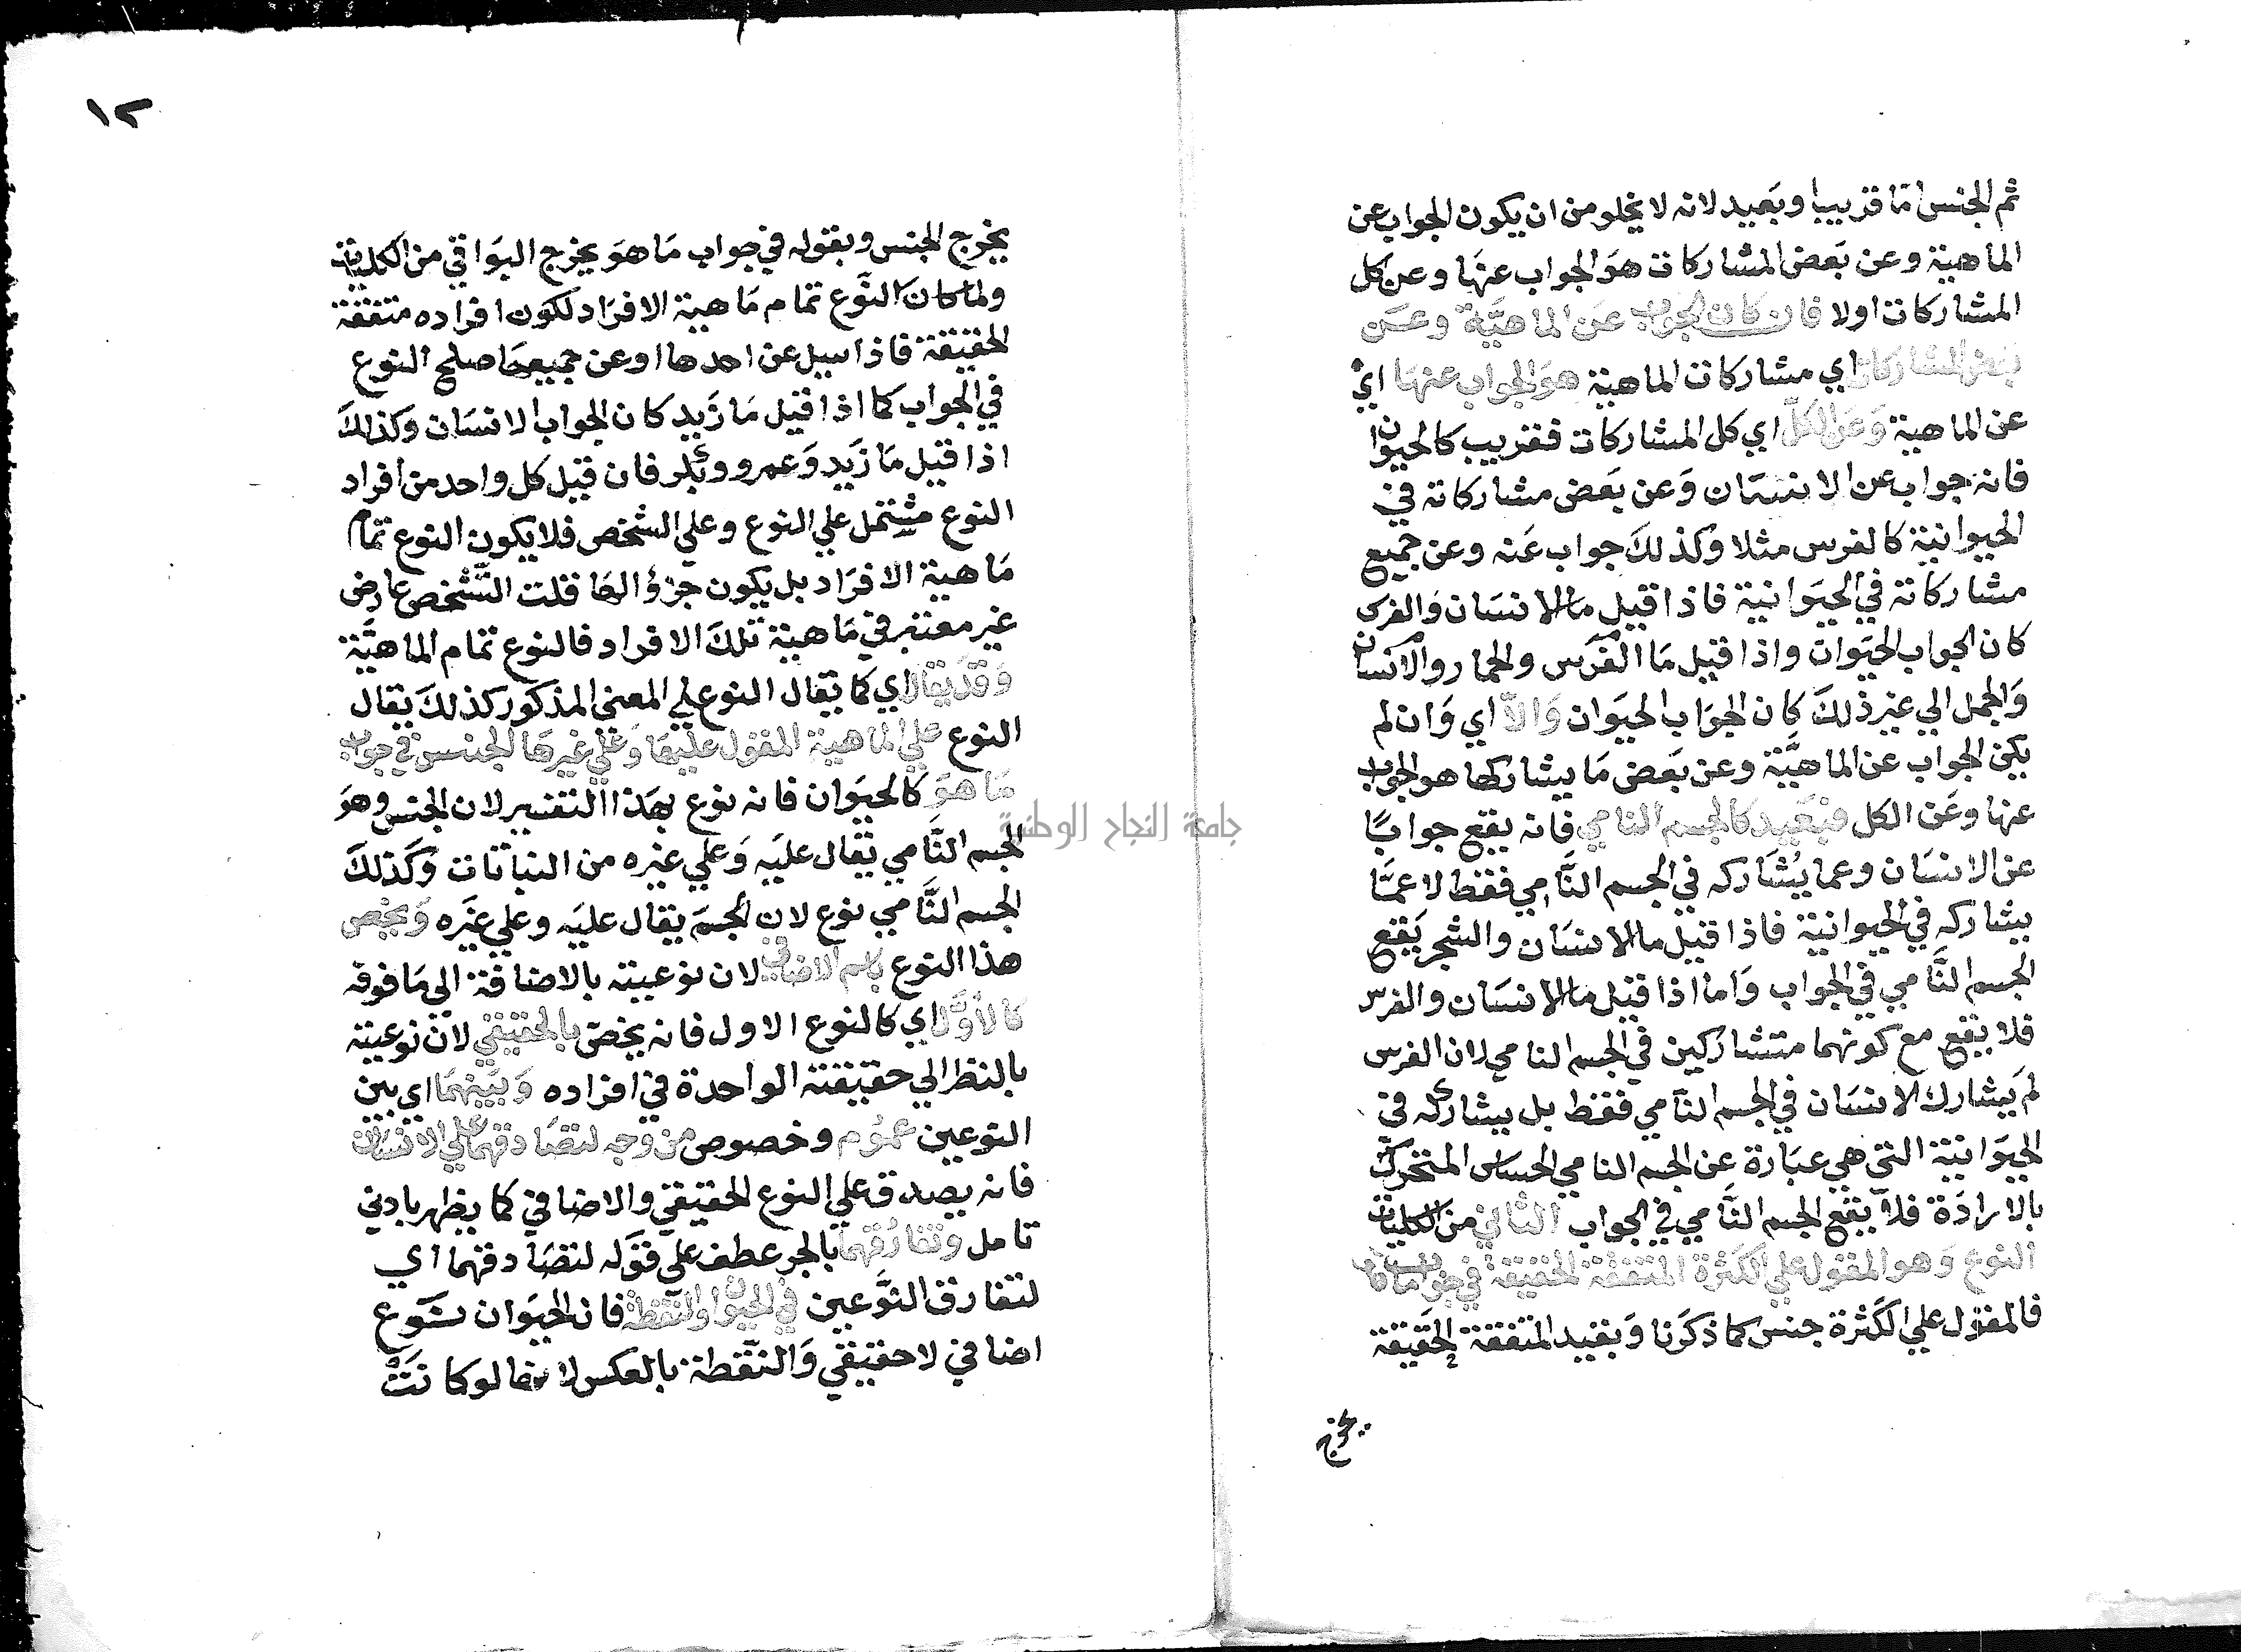 ثم الجنس اما قريب او بعيد لانه لا يخلو من ان يكون الجواب عن
الماهية وعن بعض المشاركات هو الجواب عنها وعن كل
المشاركات اولا فان كان الجواب عن الماهيَّة وعن
بعض المشاركات اي مشاركات الماهية هو الجواب عنها اي
عن الماهية وعن الكل اي كل المشاركات فقريب كالحيوان
فانه جواب عن الانسان وعن بعض مشاركاته في
الحيوانية كالفرس مثلا وكذلك جواب عنه وعن جميع
مشاركاته في الحيوانية فاذا قيل ما الانسان والفرس
كان الجواب الحيوان واذا قيل ما الفرس والحمار والانسان
والجمل الي غير ذلك كان الجواب الحيوان والّا اي وان لم
يكن الجواب عن الماهيَّة وعن بعض ما يشاركها هو الجواب
عنها وعن الكل فبعيد كالجسم النامي فانه يقع جوابا
عن الانسان وعما يُشاركه في الجسم النَّامي فقط لا عمَّا
يشاركه في الحيوانية فاذا قيل ما الانسان والشجر يقع
الجسم النَّامي في الجواب واما اذا قيل ما الانسان والفرس
فلا يقع مع كونهما متشاركين في الجسم النامي لان الفرس
لم يشارك الانسان في الجسم النامي فقط بل يشاركه في
الحيوانية التي هي عبارة عن الجسم النامي الحساس المتحرك
بالارادة فلا يقع الجسم النَّامي في الجواب الثاني من الكليات
النوع وهو المقول علي الكثرة المتفقة الحقيقة في جواب ما هو
فالمقول علي الكثرة جنس كما ذكرنا وبقيد المتفقة الحقيقة
يخرج
١٢
يخرج الجنس وبقوله في جواب ما هو يخرج البواقي من الكليات
ولما كان النوع تمام ماهية الافراد لكون افراده متفقة
الحقيقة فاذا سيل عن احدها او عن جميعها صلح النوع
في الجواب كما اذا قيل ما زيد كان الجواب الانسان وكذلك
اذا قيل ما زيد وعمرو وبكر فان قيل كل واحد من افراد
النوع مشتمل علي النوع وعلي الشخص فلا يكون النوع تمام
ماهية الافراد بل يكون جزؤ الها قلت التَّشخص عارض
غير معتبر في ماهية تلك الافراد فالنوع تمام الماهيَّة
وقد يقال اي كما يقال النوع علي المعني المذكور كذلك يقال
النوع علي الماهية المقول عليها وعلي غيرها الجنس في جواب
ما هو كالحيوان فانه نوع بهذا التفسير لان الجنس وهو
الجسم النَّامي يقال عليه وعلي غيره من النباتات وكذلك
الجسم النَّامي نوع لان الجسم يقال عليه وعلي غيره ويخص
هذا النوع باسم الاضافي لان نوعيته بالاضافة الي ما فوقه
كالاوَّل اي كالنوع الاول فانه يخص بالحقيقي لان نوعيته
بالنظر الي حقيقته الواحدة في افراده وبينهما اي بين
النوعين عموم وخصوص من وجه لتصادقهما علي الانسان
فانه يصدق علي النوع الحقيقي والاضافي كما يظهر بادني
تامل وتفارقهما بالجر عطف علي قوله لتصادقهما اي
لتفارق النَّوعين في الحيوان والنقطة فان الحيوان نوع
اضافي لا حقيقي والنقطة بالعكس لانها لو كانت
جامعة النجاح الوطنية